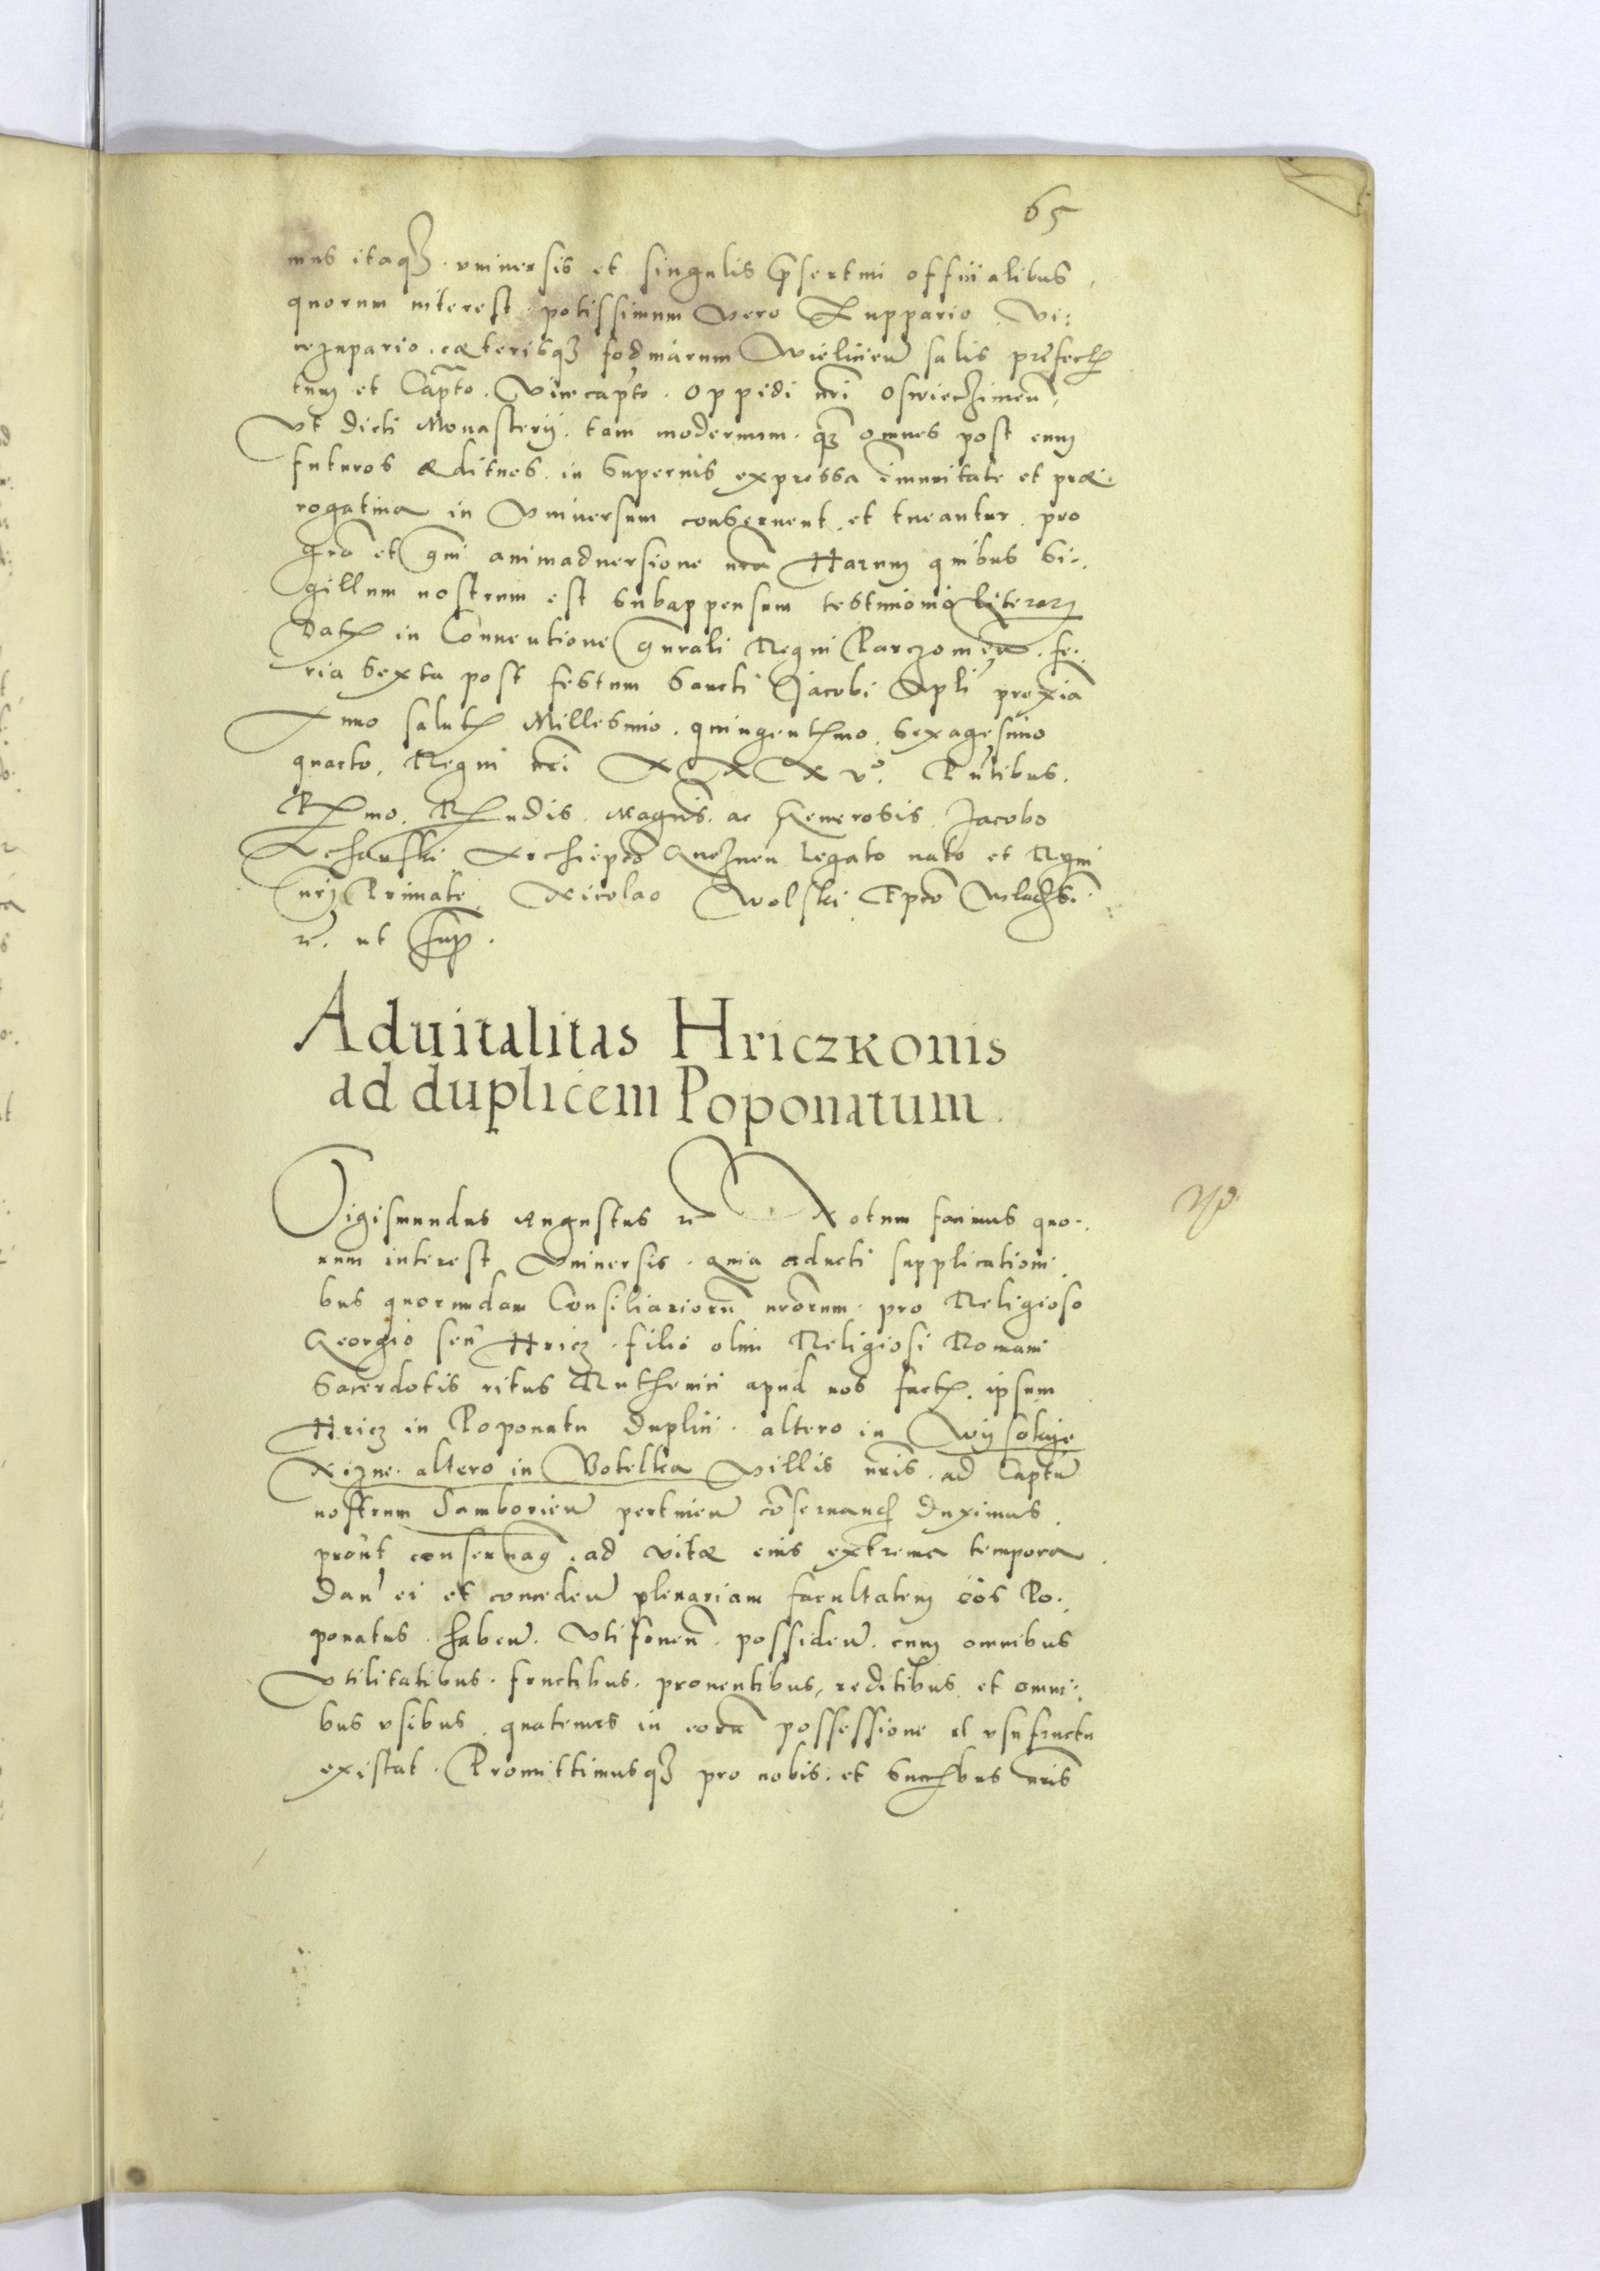 65
mus itaqȝ uniuersis et singulis p̃sertim officialibus,
quorum interest. potissimum vero Zuppario, Vi:
cezupario, cæterisqȝ fodinarum Wielicien̄ salis præfect
tum et Capto. Vicecapto. oppidi nr̃i Oswiecimen̄,
Vt dicti Monasterij. tam modernum. qȝ omnes post eum
futuros ædituos in supernis expressa im̄unitate et præ:
rogatiua in Vniuersum conseruent. et tueantur. pro
gr̃a et gr̃ui animaduersione nr̃a Harum quibus Si:
gillum nostrum est subappensum testimonio literarȝ
Dat in Conuentione gñrali Regni Parczouien̄. fe:
ria sexta post festum Sancti Jacobi Apli proxĩa
Anno salut Millesimo. quingentmo. sexagesimo
quarto, Regni nr̃i XXXV°. Pñtibus.
Rmo. Rndis. Magcis. ac Generosis. Jacobo
Vchanski Archiepo Gneznen̄ Legato nato et Rgni
nr̃i Primate, Nicolao Wolski Epo Wladisl:
ꝛc. ut sup̃.
Aduitalitas Hriczkonis
ad duplicem Poponatum.
Sigismundus Augustus ꝛc Notum facimus quo:
rum interest Vniuersis. quia adducti supplicationi
bus quorumdam Consiliariorũ nr̃orum. pro Religioso
Georgio seu Hricz. filio olim Religiosi Romani
Sacerdotis ritus Ruthenici apud nos fact. ipsum
Hricz in Poponatu duplici. altero in Wysokije
Nizne. altero in Botelka Villis nr̃is. ad Captũ
nostrum Samborien̄ pertinen̄ cõseruand duximus
prout conseruaq̃. ad vitæ eius extrema tempora.
Dan̄ ei et conceden̄ plenariam facultatem eõs Po:
ponatus. haben̄. Vtifruen̄. possiden̄. cum omnibus
Vtilitatibus. fructibus. prouentibus, reditibus et omni:
bus usibus. quatenus in eorũ possessione et usufructu
existat. Promittimusqȝ pro nobis. et Succbus nr̃is